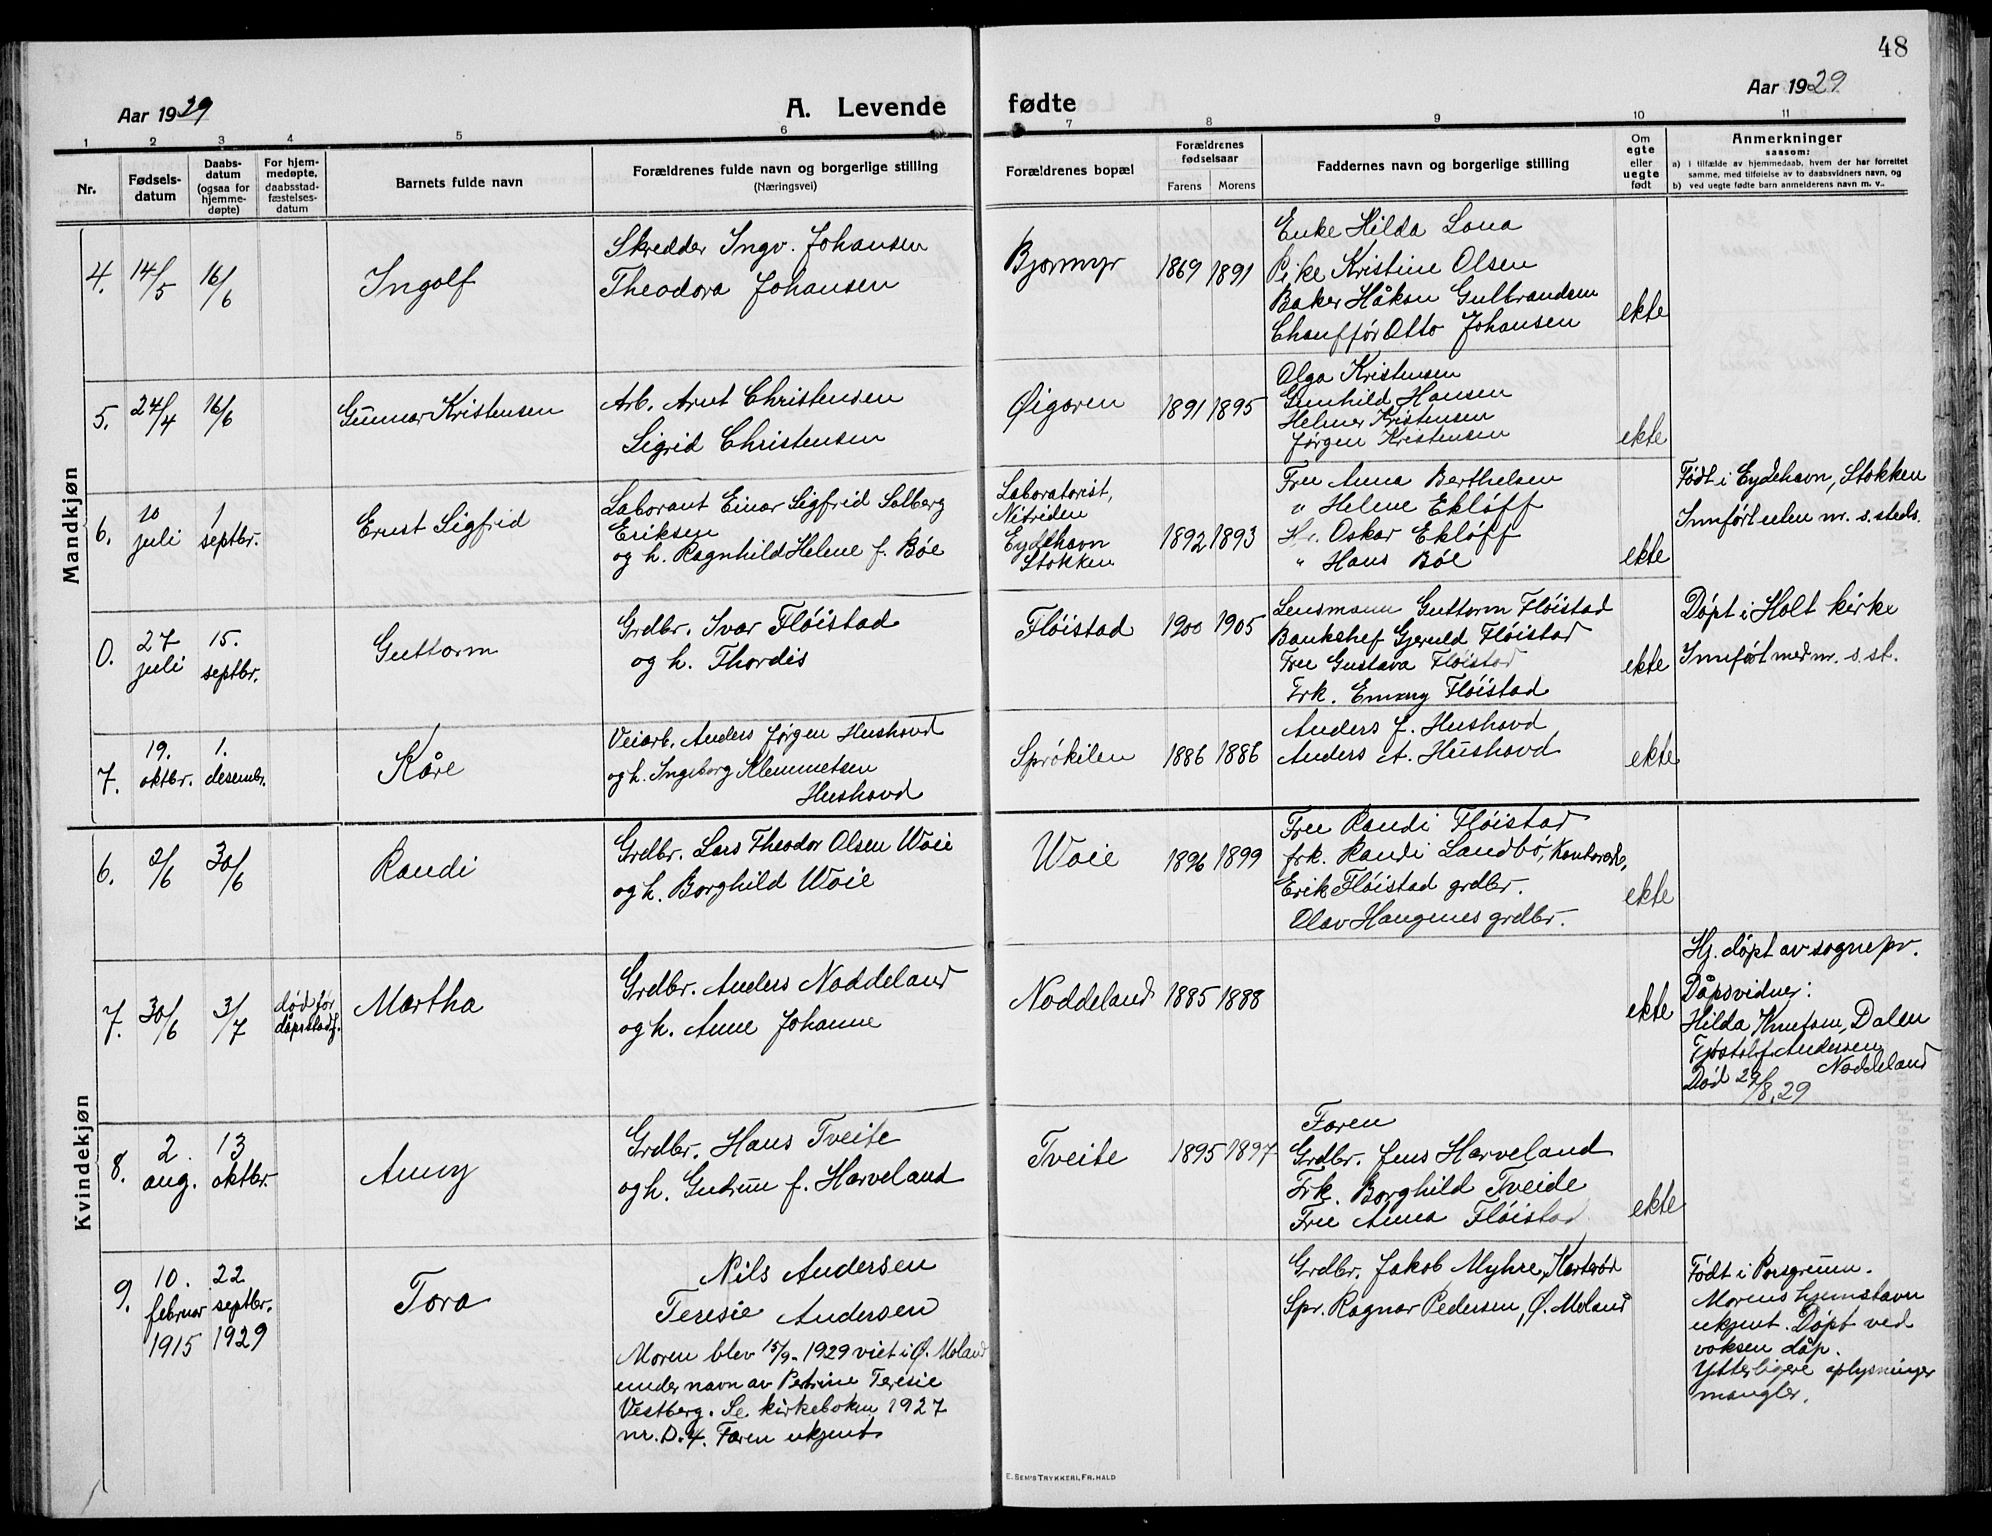 48
Aar 1929
A. Levende fødte
Aar 1929
1 2 3 4 5 6 7 8 9 10 11
Nr.
Fødsels-
datum
Daabs-
datum
(ogsaa for
hjemme-
døpte)
For hjem-
medøpte,
daabsstad-
fæstelses-
datum
Barnets fulde navn
Forældrenes fulde navn og borgerlige stilling
(Næringsvei)
Forældrenes bopæl
Forældrenes
fødselsaar
Farens Morens
Faddernes navn og borgerlige stilling
Om
egte
eller
uegte
født
Anmerkninger
saasom:
a) i tilfælde av hjemmedaab, hvem der har forrettet
samme, med tilføielse av to daabsvidners navn, og
b) ved uegte fødte barn anmelderens navn m. v..
Mandkjøn
4. 14/5 16/6 Ingolf
Skredder Ingv. Johansen
Theodora Johansen
Bjormyr 1869 1891
Enke Hilda Lona
Pike Kristine Olsen
Baker Håkon Gulbrandsen
Chauffør Otto Johansen
ekte
5. 24/4 16/6 Gunnar Kristensen
Arb. Arnt Christensen
Sigrid Christensen
Øigaren 1891 1895
Olga Kristensen
Gunhild Hansen
Helmer Kristensen
Jørgen Kristensen
ekte
6. 10 juli 1 septbr. Ernst Sigfrid
Laborant Einar Sigfrid Solberg
Eriksen
og h. Ragnhild Helene f. Bøe
Laboratorist,
Nitriden
Eydehavn
Stokken
1892 1893
Fru Anna Berthelsen
" Helene Ekløff
Hr. Oskar Ekløff
" Hans Bøe
ekte
Født i Eydehavn, Stokken
Innført uten nr. s. steds.
0. 27 juli 15. septbr. Guttorm
Grdbr. Ivar Fløistad
og h. Thordis
Fløistad 1900 1905
Lensmann Guttorm Fløistad
Bankchef Gjeruld Fløistad
Fru Gustava Fløistad
Frk. Emmy Fløistad
ekte
Døpt i Holt kirke
Innført med nr. s. st.
7. 19. oktbr. 1. desembr. Kåre
Veiarb. Anders Jørgen Hushovd
og h. Ingeborg Klemmetsen
Hushovd
Sprøkilen 1886 1886
Anders J. Hushovd
Anders A. Hushovd
ekte
Kvindekjøn
6. 2/6 30/6 Randi
Grdbr. Lars Theodor Olsen Woie
og h. Borghild Woie
Woie 1896 1899
Fru Randi Fløistad
frk. Randi Landbø,
Erik Fløistad grdbr.
Olav Haugenes grdbr.
ekte
7. 30/6 3/7 død før
dåpsstadf.
Martha
Grdbr. Anders Noddeland
og h. Anne Johanne
Noddeland 1885 1888
ekte
Hj. døpt av sognepr.
Dåpsvidner:
Hilda Knutsen, Dalen
Tjøstolf Andersen
Noddeland
Død 29/8. 29
8. 2. aug. 13 oktbr. Anny
Grdbr. Hans Tveite
og h. Gudrun f. Harveland
Tveite 1895 1897
Faren
Grdbr. Jens Harveland
Frk. Borghild Tveide
Fru Anna Fløistad
ekte
9. 10. februar 1915 22 septbr. 1929 Tora
Nils Andersen
Teresie Andersen
Moren blev 15/9-1929 viet i Ø. Moland
under navn av Petrine Teresie
Vestberg. Se kirkeboken 1927
nr. D. 4. Faren ukjent
Grdbr. Jakob Myhre,
Spr. Ragnar Pedersen, Ø. Moland
Født i Porsgrunn.
Morens hjemstavn
ukjent. Døpt ved
voksen dåp.
Ytterligere oplysninger
mangler.
E. SEM'S TRYKKERI, FR. HALD